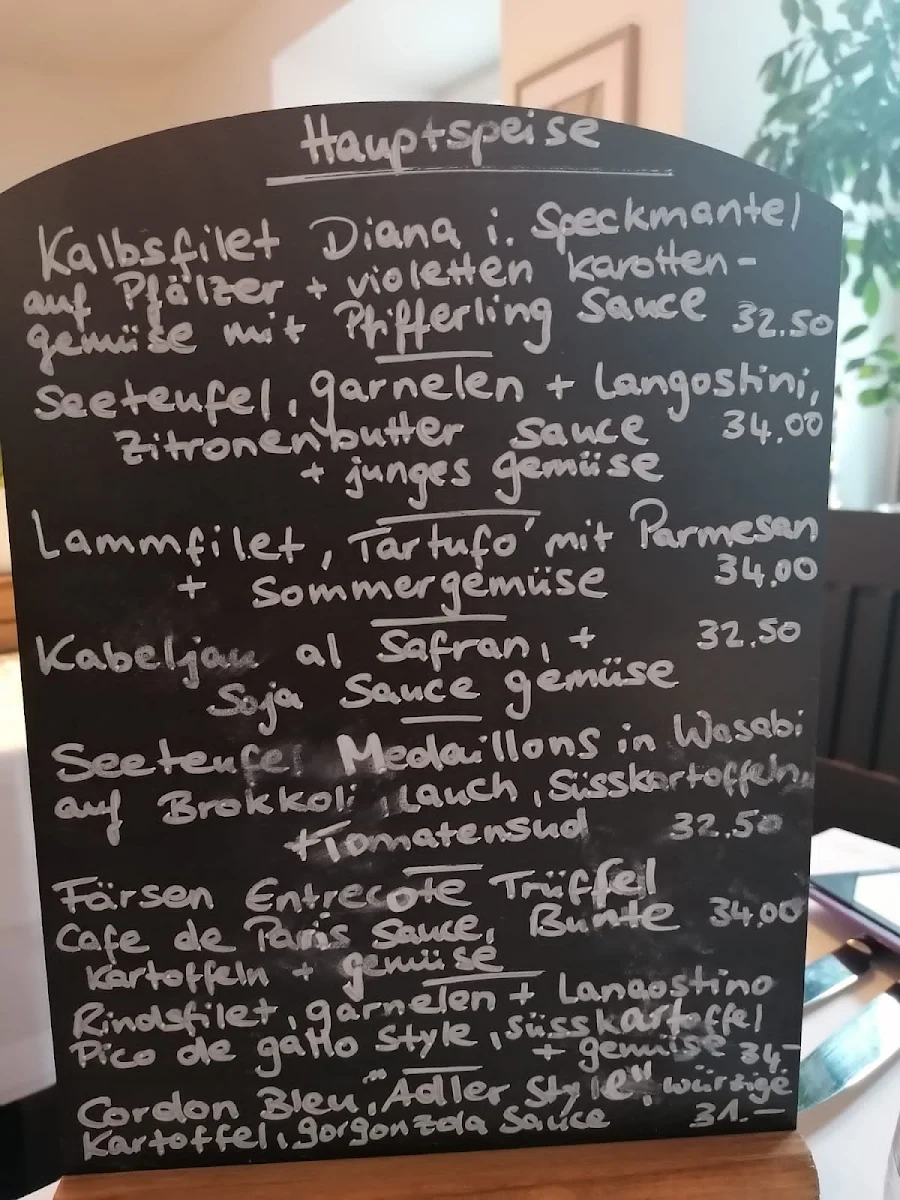 Hauptspeise
Kalbsfilet Diana i. Speckmantel
auf Pfälzer + violetten Karotten-
gemüse mit Pfifferling Sauce 32.50
Seeteufel, Garnelen + Langostini,
Zitronenbutter Sauce 34.00
+ junges Gemüse
Lammfilet, Tartufo mit Parmesan
+ Sommergemüse 34.00
Kabeljau al Safran, + 32.50
Soja Sauce gemüse
Seeteufel Medaillons in Wasabi
auf Brokkoli, Lauch, Süsskartoffeln,
+Tomatensud 32.50
Färsen Entrecote Trüffel
Cafe de Paris Sauce, Bunte 34.00
Kartoffeln + gemüse
Rindsfilet, garnelen + Langostino
Pico de gallo Style, süsskartoffel
+ gemüse 34,-
Cordon Bleu "Adler Style", würzige
Kartoffel, gorgonzola Sauce 31.-